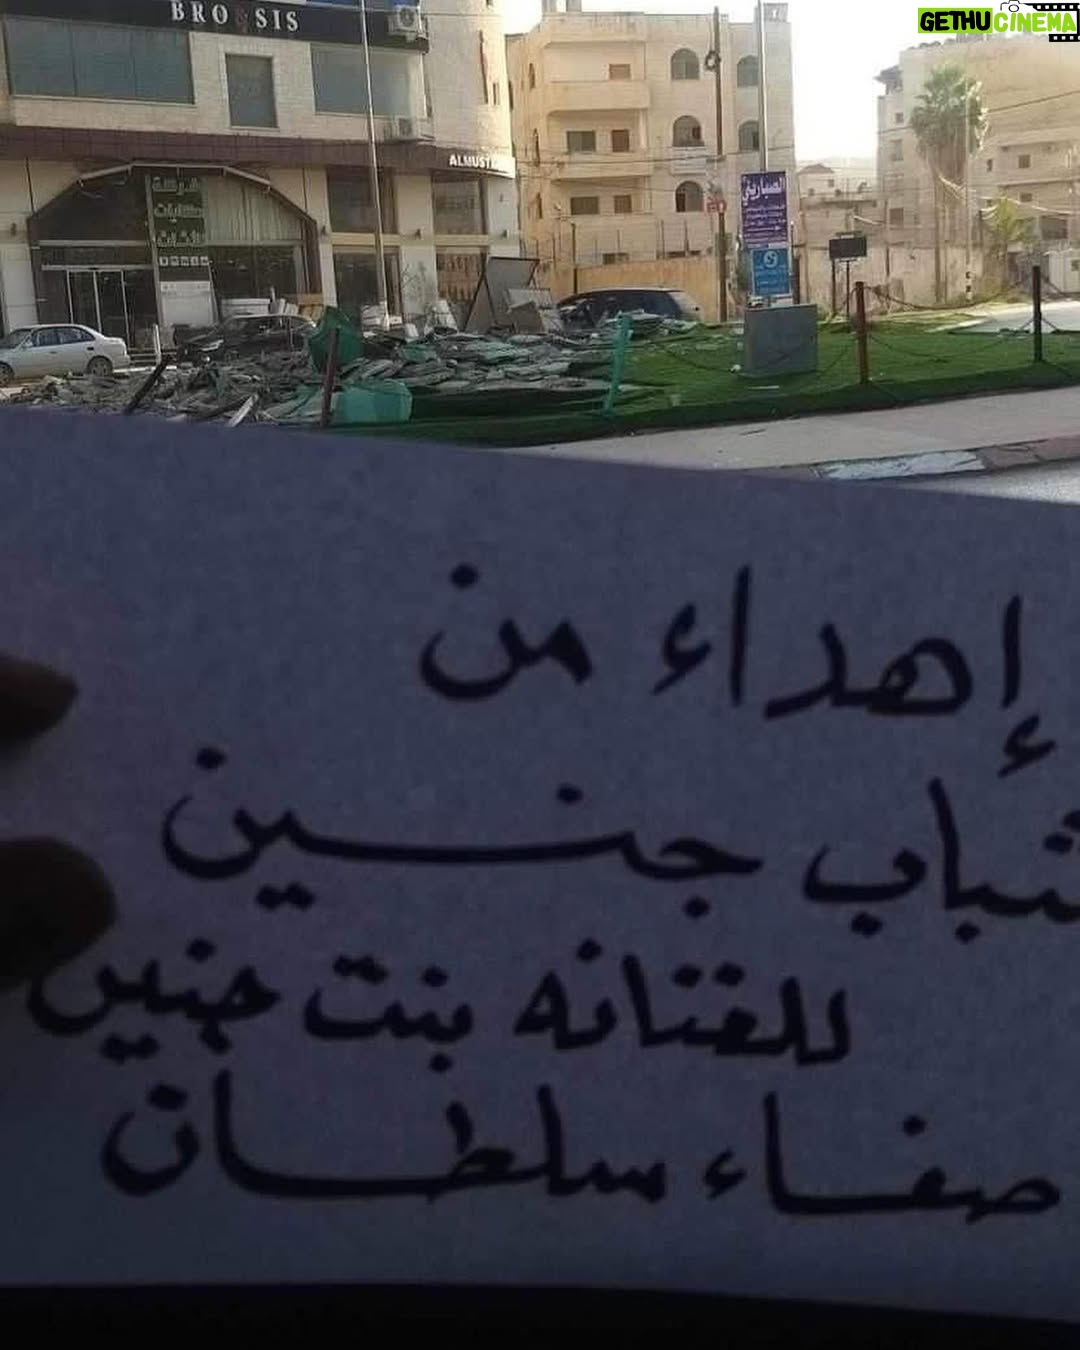 GETHUCINEMA
BRO&SIS
ALMUST
الصباريني
إهداء من
شباب جنين
للفنانه بنت جنين
صفاء سلطان